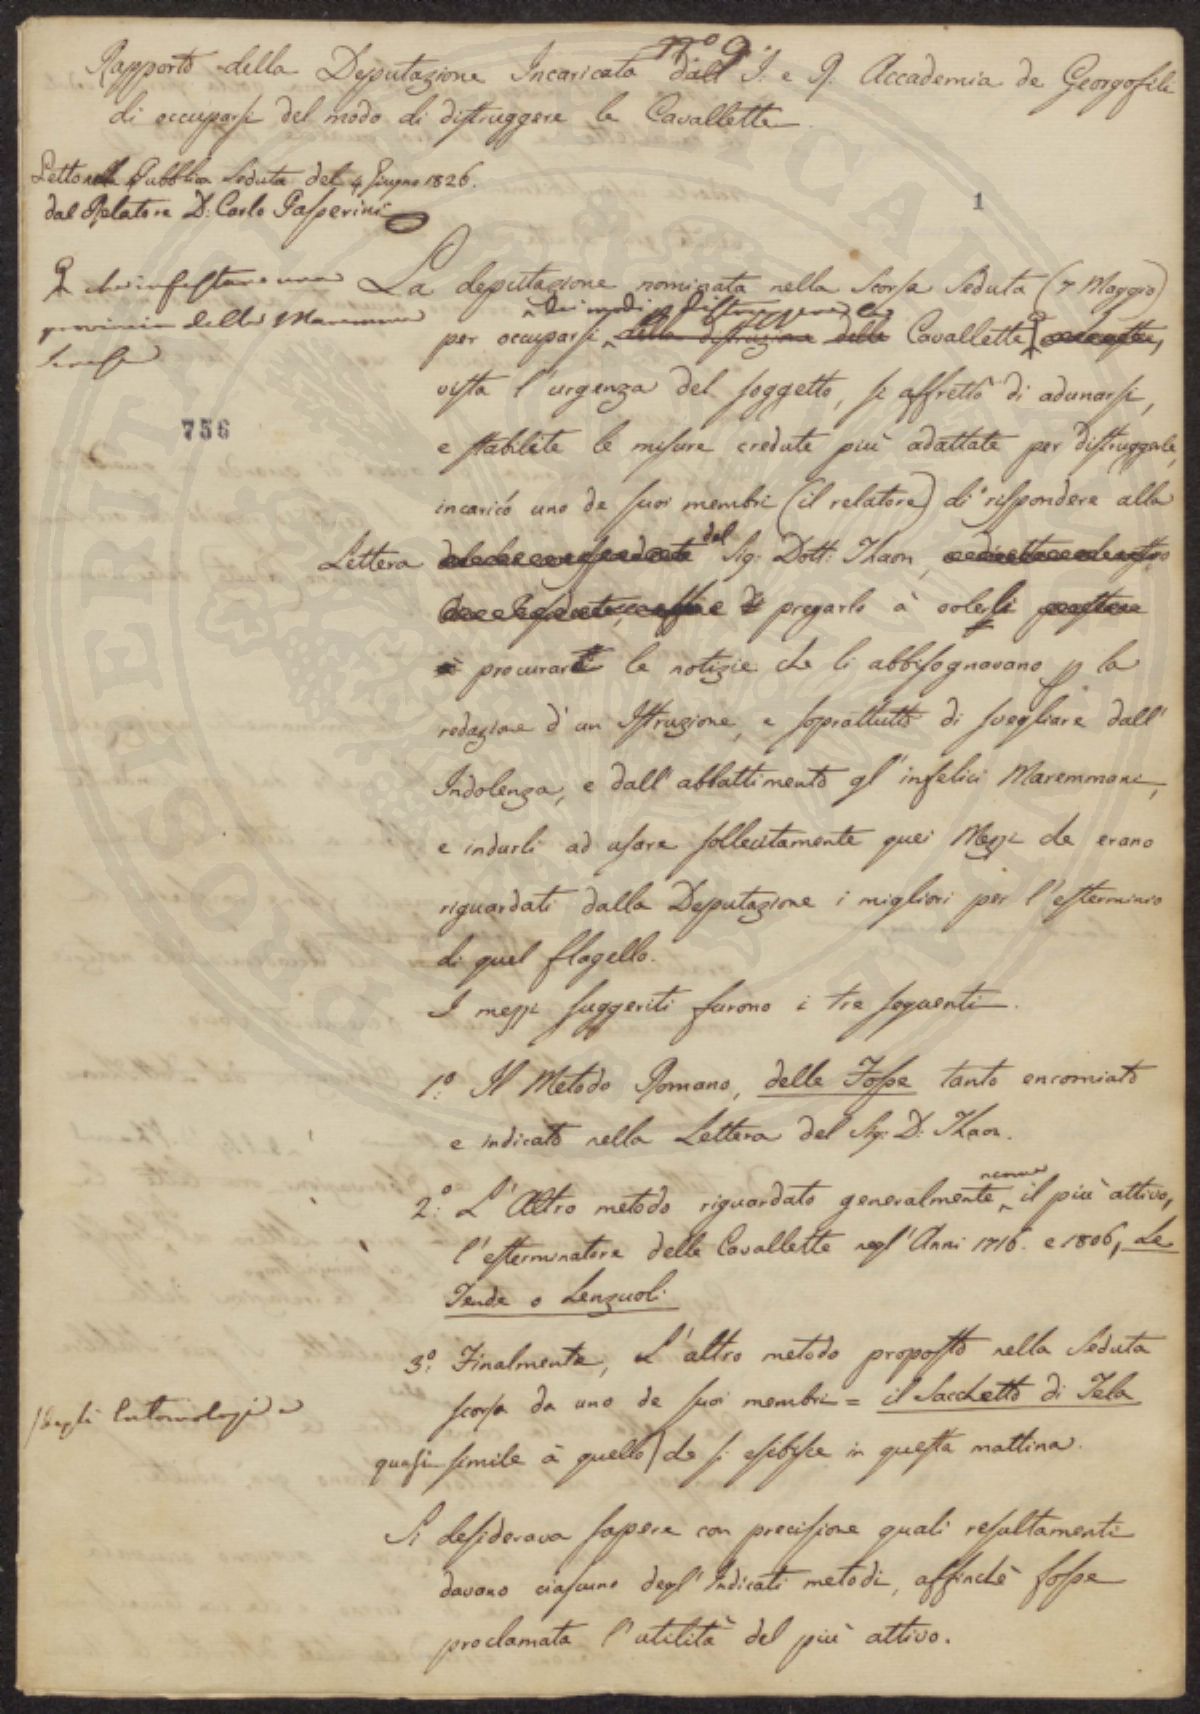 n.º 9.
Rapporto della Deputazione Incaricata dall' I. e R. Accademia de Georgofili
di occuparsi del modo di distruggere le Cavallette
Letto nella Pubblica Seduta del 4 Giugno 1826.
dal Relatore D: Carlo Passerini
1
che infestarono una
provincia della Maremma
756
La deputazione nominata nella scorsa Seduta (7 Maggio)
dei modi di distruggere le
per occuparsi della distruzione delle Cavallette
vista l'urgenza del soggetto, si affrettò di adunarsi,
e stabilite le misure credute più adattate per distruggerle,
incaricò uno de suoi membri (il relatore) di rispondere alla
Lettera del Sig: Dott: Thaon,
pregarlo à volerli
procurare le notizie che li abbisognavano p. la
redazione d'un Istruzione, e soprattutto di svegliare dall'
Indolenza, e dall'abbattimento gl'infelici Maremmani,
e indurli ad usare sollecitamente quei Mezzi che erano
riguardati dalla Deputazione i migliori per l'esterminio
di quel flagello.
I mezzi suggeriti furono i tre seguenti.
1º. Il Metodo Romano, delle Fosse tanto encomiato
e indicato nella Lettera del Sig: D: Thaon.
2º. L'Altro metodo riguardato generalmente come il più attivo,
l'esterminatore delle Cavallette negl'Anni 1716. e 1806, Le
Tende o Lenzuoli
3º. Finalmente, L'altro metodo proposto nella Seduta
scorsa da uno de suoi membri = il Sacchetto di Tela
degli Entomologi
quasi simile à quello che si esibisce in questa mattina.
Si desiderava sapere con precisione quali resultamenti
davano ciascuno degl'Indicati metodi, affinchè fosse
proclamata l'utilità del più attivo.